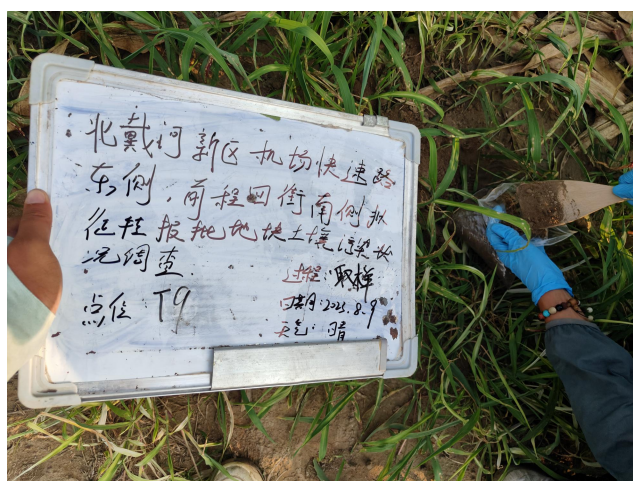 北戴河新区机场快速路
东侧，前程四街南侧拟
征转报批地块土壤污染状
况调查
过程：取样
点位：T9
日期：2023.8.9
天气：晴